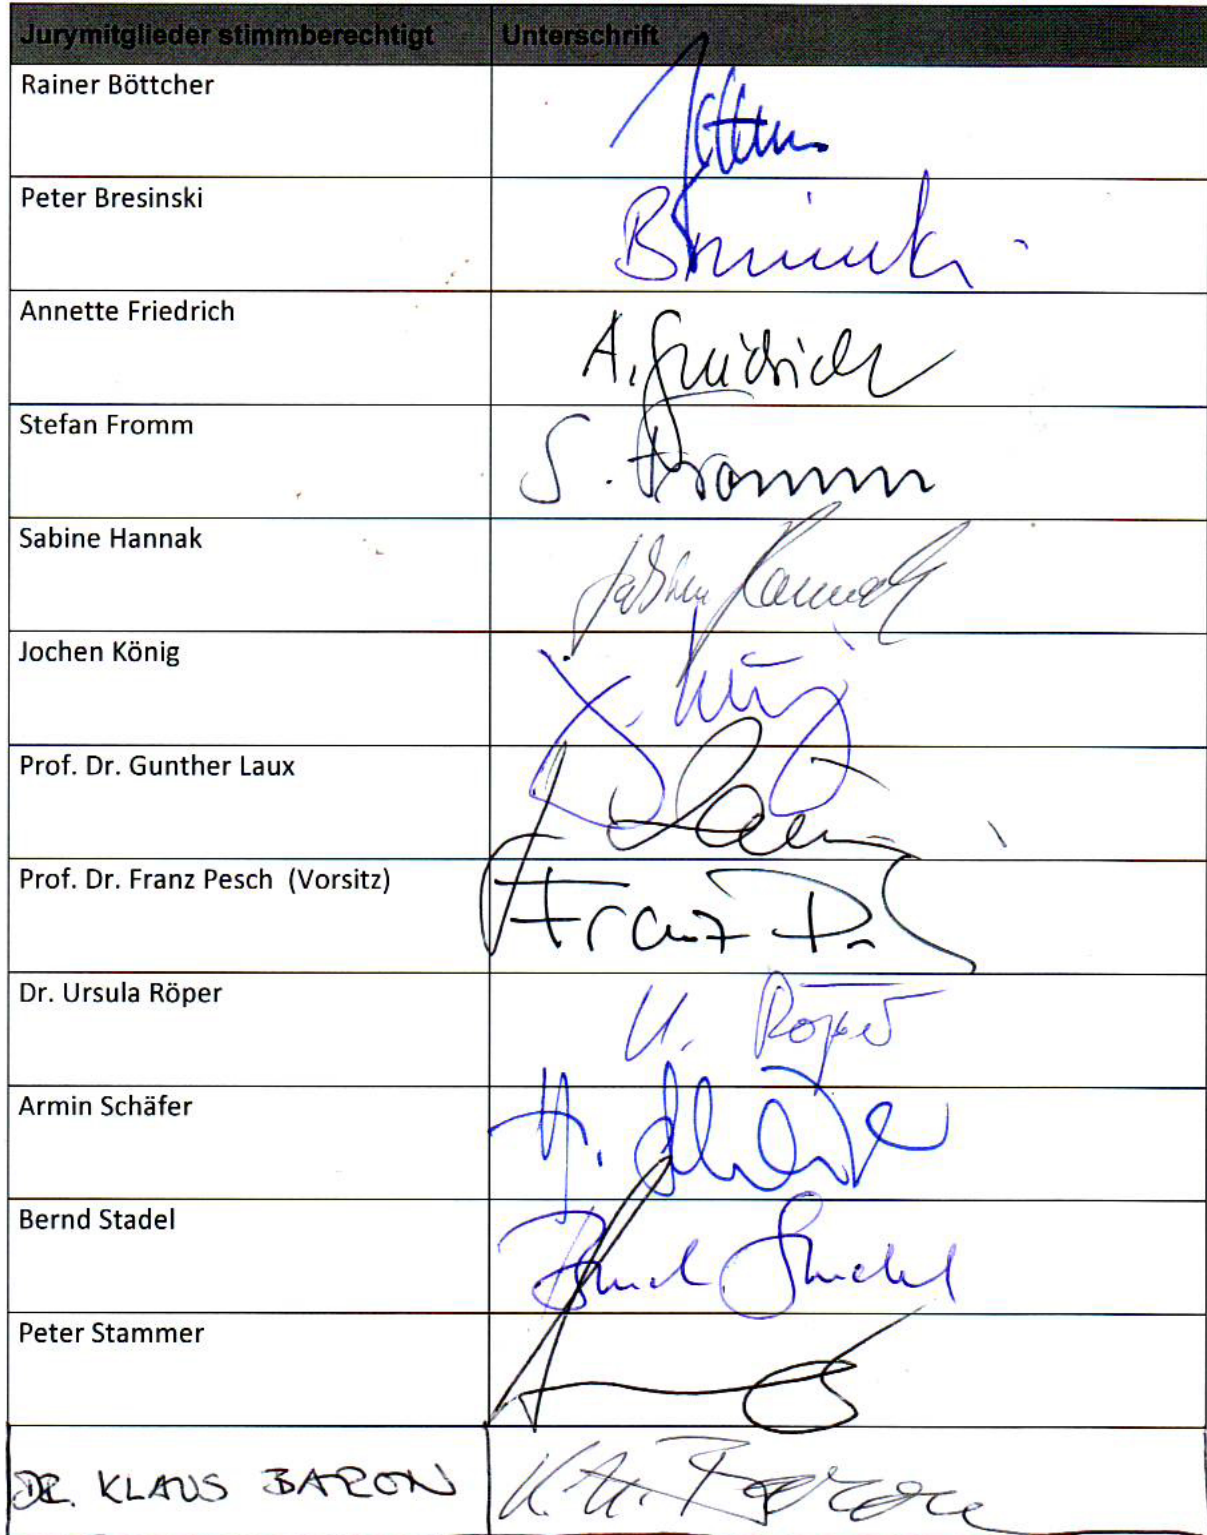 Jurymitglieder stimmberechtigt Unterschrift
Rainer Böttcher
Peter Bresinski
Annette Friedrich A. Friedrich
Stefan Fromm S. Fromm
Sabine Hannak Sabine Hannak
Jochen König J. König
Prof. Dr. Gunther Laux
Prof. Dr. Franz Pesch (Vorsitz) Franz P.
Dr. Ursula Röper U. Röper
Armin Schäfer A.
Bernd Stadel Bernd Stadel
Peter Stammer
DR. KLAUS BARON K. H. Baron